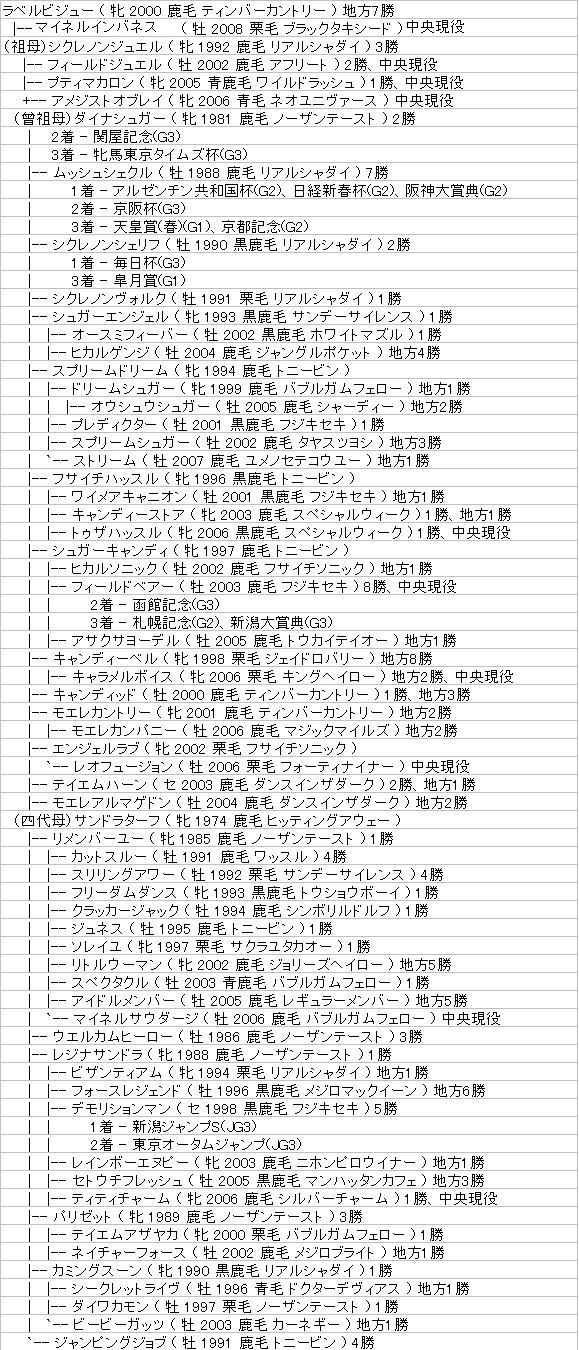 ラベルビジュー（ 牝 2000 鹿毛 ティンバーカントリー ）地方7勝
|-- マイネルインバネス （ 牡 2008 栗毛 ブラックタキシード ）中央現役
(祖母)シクレノンジュエル（ 牝 1992 鹿毛 リアルシャダイ ）3勝
|-- フィールドジュエル（ 牡 2002 鹿毛 アフリート ）2勝、中央現役
|-- プティマカロン（ 牝 2005 青鹿毛 ワイルドラッシュ ）1勝、中央現役
+-- アメジストオブレイ（ 牝 2006 青毛 ネオユニヴァース ）中央現役
(曾祖母)ダイナシュガー（ 牝 1981 鹿毛 ノーザンテースト ）2勝
| 2着 - 関屋記念(G3)
| 3着 - 牝馬東京タイムズ杯(G3)
|-- ムッシュシェクル（ 牡 1988 鹿毛 リアルシャダイ ）7勝
| 1着 - アルゼンチン共和国杯(G2)、日経新春杯(G2)、阪神大賞典(G2)
| 2着 - 京阪杯(G3)
| 3着 - 天皇賞(春)(G1)、京都記念(G2)
|-- シクレノンシェリフ（ 牡 1990 黒鹿毛 リアルシャダイ ）2勝
| 1着 - 毎日杯(G3)
| 3着 - 皐月賞(G1)
|-- シクレノンヴォルク（ 牡 1991 栗毛 リアルシャダイ ）1勝
|-- シュガーエンジェル（ 牝 1993 黒鹿毛 サンデーサイレンス ）1勝
| |-- オースミフィーバー（ 牡 2002 黒鹿毛 ホワイトマズル ）1勝
| |-- ヒカルゲンジ（ 牡 2004 鹿毛 ジャングルポケット ）地方4勝
|-- スプリームドリーム（ 牝 1994 鹿毛 トニービン ）
| |-- ドリームシュガー（ 牝 1999 鹿毛 バブルガムフェロー ）地方1勝
| | |-- オウシュウシュガー（ 牡 2005 鹿毛 シャーディー ）地方2勝
| |-- プレディクター（ 牡 2001 黒鹿毛 フジキセキ ）1勝
| |-- スプリームシュガー（ 牡 2002 鹿毛 タヤスツヨシ ）地方3勝
| `-- ストリーム（ 牡 2007 鹿毛 ユメノセテコウユー ）地方1勝
|-- フサイチハッスル（ 牝 1996 黒鹿毛 トニービン ）
| |-- ワイメアキャニオン（ 牡 2001 黒鹿毛 フジキセキ ）地方1勝
| |-- キャンディーストア（ 牝 2003 鹿毛 スペシャルウィーク ）1勝、地方1勝
| |-- トゥザハッスル（ 牝 2006 黒鹿毛 スペシャルウィーク ）1勝、中央現役
|-- シュガーキャンディ（ 牝 1997 鹿毛 トニービン ）
| |-- ヒカルソニック（ 牡 2002 鹿毛 フサイチソニック ）地方1勝
| |-- フィールドベアー（ 牡 2003 鹿毛 フジキセキ ）8勝、中央現役
| 2着 - 函館記念(G3)
| 3着 - 札幌記念(G2)、新潟大賞典(G3)
| |-- アサクサヨーデル（ 牡 2005 鹿毛 トウカイテイオー ）地方1勝
|-- キャンディーベル（ 牝 1998 栗毛 ジェイドロバリー ）地方8勝
| |-- キャラメルボイス（ 牡 2006 栗毛 キングヘイロー ）地方2勝、中央現役
|-- キャンディッド（ 牡 2000 鹿毛 ティンバーカントリー ）1勝、地方3勝
|-- モエレカントリー（ 牝 2001 鹿毛 ティンバーカントリー ）地方2勝
| |-- モエレカンパニー（ 牡 2006 鹿毛 マジックマイルズ ）地方2勝
|-- エンジェルラブ（ 牝 2002 栗毛 フサイチソニック ）
| `-- レオフュージョン（ 牡 2006 栗毛 フォーティナイナー ）中央現役
|-- テイエムハーン（ セ 2003 鹿毛 ダンスインザダーク ）2勝、地方1勝
|-- モエレアルマゲドン（ 牡 2004 鹿毛 ダンスインザダーク ）地方2勝
(四代母)サンドラターフ（ 牝 1974 鹿毛 ヒッティングアウェー ）
|-- リメンバーユー（ 牝 1985 鹿毛 ノーザンテースト ）1勝
| |-- カットスルー（ 牡 1991 鹿毛 ワッスル ）4勝
| |-- スリリングアワー（ 牡 1992 栗毛 サンデーサイレンス ）4勝
| |-- フリーダムダンス（ 牝 1993 黒鹿毛 トウショウボーイ ）1勝
| |-- クラッカージャック（ 牡 1994 鹿毛 シンボリルドルフ ）1勝
| |-- ジュネス（ 牡 1995 鹿毛 トニービン ）1勝
| |-- ソレイユ（ 牝 1997 栗毛 サクラユタカオー ）1勝
| |-- リトルウーマン（ 牝 2002 鹿毛 ジョリーズヘイロー ）地方5勝
| |-- スペクタクル（ 牡 2003 青鹿毛 バブルガムフェロー ）1勝
| |-- アイドルメンバー（ 牡 2005 鹿毛 レギュラーメンバー ）地方5勝
| `-- マイネルサウダージ（ 牡 2006 鹿毛 バブルガムフェロー ）中央現役
|-- ウエルカムヒーロー（ 牡 1986 鹿毛 ノーザンテースト ）3勝
|-- レジナサンドラ（ 牝 1988 鹿毛 ノーザンテースト ）1勝
| |-- ビザンティアム（ 牝 1994 栗毛 リアルシャダイ ）地方1勝
| |-- フォースレジェンド（ 牡 1996 黒鹿毛 メジロマックイーン ）地方6勝
| |-- デモリションマン（ セ 1998 黒鹿毛 フジキセキ ）5勝
| 1着 - 新潟ジャンプS(JG3)
| 2着 - 東京オータムジャンプ(JG3)
| |-- レインボーエヌビー（ 牝 2003 鹿毛 ニホンピロウイナー ）地方1勝
| |-- セトウチフレッシュ（ 牡 2005 黒鹿毛 マンハッタンカフェ ）地方3勝
| |-- ティティチャーム（ 牝 2006 鹿毛 シルバーチャーム ）1勝、中央現役
|-- パリゼット（ 牝 1989 鹿毛 ノーザンテースト ）3勝
| |-- テイエムアザヤカ（ 牝 2000 栗毛 バブルガムフェロー ）1勝
| |-- ネイチャーフォース（ 牡 2002 鹿毛 メジロブライト ）地方1勝
|-- カミングスーン（ 牝 1990 黒鹿毛 リアルシャダイ ）1勝
| |-- シークレットライヴ（ 牡 1996 青毛 ドクターデヴィアス ）地方1勝
| |-- ダイワカモン（ 牡 1997 栗毛 ノーザンテースト ）1勝
| `-- ビービーガッツ（ 牡 2003 鹿毛 カーネギー ）地方1勝
`-- ジャンピングジョブ（ 牡 1991 鹿毛 トニービン ）4勝